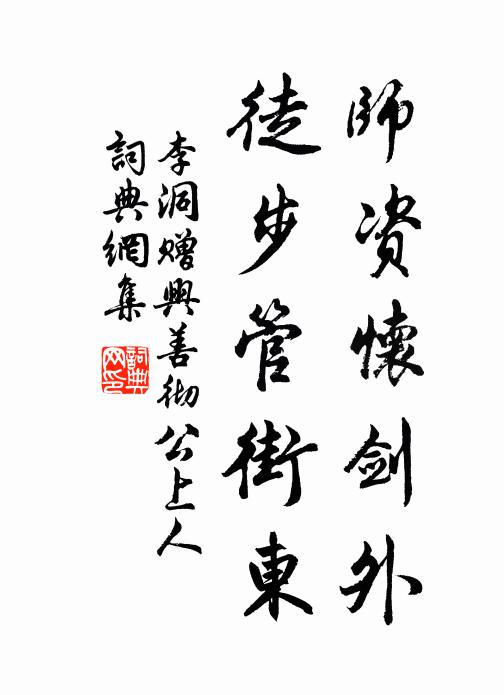 師資懷劍外
徒步管街東
李洞贈興善彻公上人
詞典網集
詞典網印